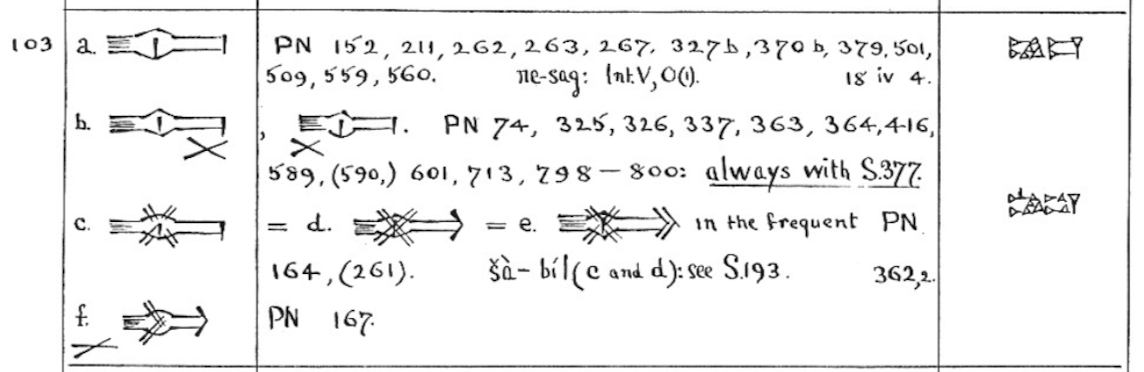 103 a. PN 152, 211, 262, 263, 267. 327b, 370b, 379, 501,
509, 559, 560. ne-sag: Int. V, O(1). 18 iv 4.
b. , . PN 74, 325, 326, 337, 363, 364, 416,
589, (590,) 601, 713, 798–800: always with S.377.
c. = d. = e. in the frequent PN
164, (261). šà-bíl (c and d): see S.193. 362,2.
f. PN 167.